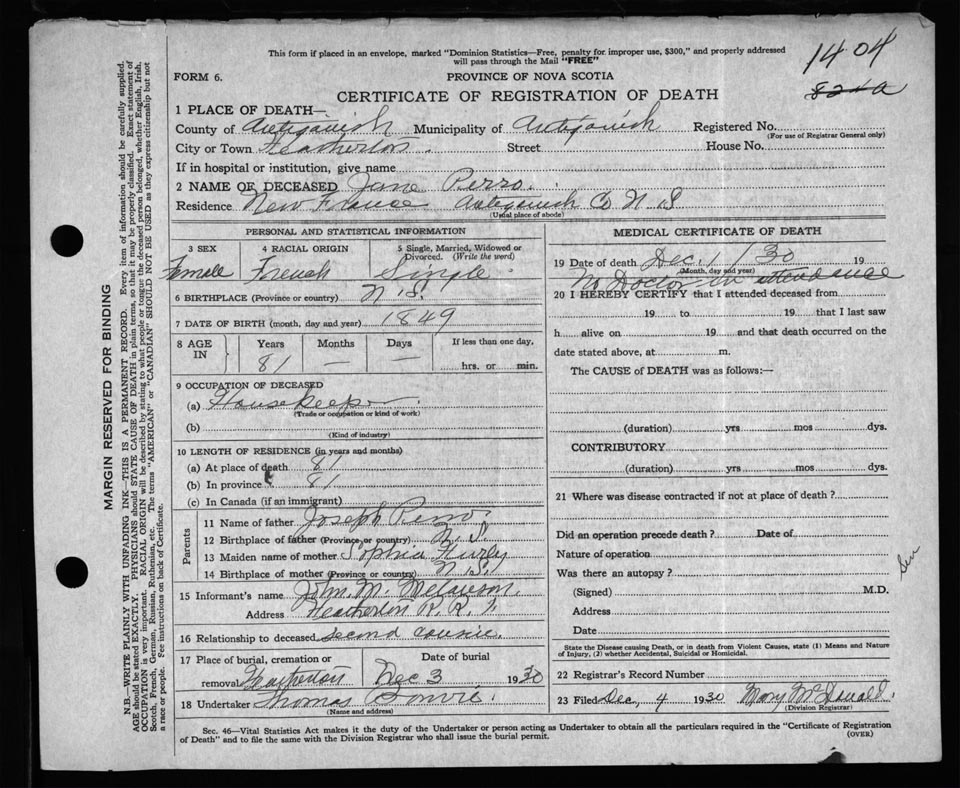 This form if placed in an envelope, marked "Dominion Statistics—Free, penalty for improper use, $300," and properly addressed
will pass through the Mail "FREE"
1404
FORM 6.
PROVINCE OF NOVA SCOTIA
CERTIFICATE OF REGISTRATION OF DEATH
1 PLACE OF DEATH—
County of Antigonish Municipality of Antigonish Registered No.
(For use of Registrar General only)
City or Town Heatherton. Street House No.
If in hospital or institution, give name
2 NAME OF DECEASED Jane Perro.
Residence New France Antigonish Co N S
(Usual place of abode)
PERSONAL AND STATISTICAL INFORMATION
3 SEX 4 RACIAL ORIGIN 5 Single, Married, Widowed or Divorced. (Write the word)
Female French Single.
6 BIRTHPLACE (Province or country) N S.
7 DATE OF BIRTH (month, day and year) 1849
8 AGE IN Years Months Days If less than one day,
81 — — hrs. or min.
9 OCCUPATION OF DECEASED
(a) Housekeeper.
(Trade or occupation or kind of work)
(b)
(Kind of industry)
10 LENGTH OF RESIDENCE (in years and months)
(a) At place of death 81
(b) In province 81
(c) In Canada (if an immigrant)
Parents
11 Name of father Joseph Perro.
12 Birthplace of father (Province or country) N. S.
13 Maiden name of mother Sophia
14 Birthplace of mother (Province or country) N S.
15 Informant's name John M.
Address Heatherton R. R. 1
16 Relationship to deceased second cousin.
17 Place of burial, cremation or removal Heatherton
Date of burial
Dec 3 1930
18 Undertaker Thomas
(Name and address)
MEDICAL CERTIFICATE OF DEATH
19 Date of death Dec. 1 / 30 19
(Month, day and year)
No Doctor in attendance
20 I HEREBY CERTIFY that I attended deceased from
19 to 19 that I last saw
h alive on 19 and that death occurred on the
date stated above, at m.
The CAUSE of DEATH was as follows:—
(duration) yrs mos dys.
CONTRIBUTORY
(duration) yrs mos dys.
21 Where was disease contracted if not at place of death?
Did an operation precede death? Date of
Nature of operation
Was there an autopsy?
(Signed) M.D.
Address
Date
State the Disease causing Death, or in death from Violent Causes, state (1) Means and Nature
of Injury, (2) whether Accidental, Suicidal or Homicidal.
22 Registrar's Record Number
23 Filed Dec, 4 1930 Mary McDonald.
(Division Registrar)
Sec. 46—Vital Statistics Act makes it the duty of the Undertaker or person acting as Undertaker to obtain all the particulars required in the "Certificate of Registration
of Death" and to file the same with the Division Registrar who shall issue the burial permit.
(OVER)
MARGIN RESERVED FOR BINDING
N.B.—WRITE PLAINLY WITH UNFADING INK—THIS IS A PERMANENT RECORD. Every item of information should be carefully supplied.
AGE should be stated EXACTLY. PHYSICIANS should STATE CAUSE OF DEATH in plain terms, so that it may be properly classified. Exact statement of
OCCUPATION is very important. RACIAL ORIGIN will be described by stating to what people or tongue the deceased person belonged, whether English, Irish,
Scotch, French, German, Russian, Ruthenian, etc. The terms "AMERICAN" or "CANADIAN" SHOULD NOT BE USED as they express citizenship but not
a race or people. See instructions on back of Certificate.